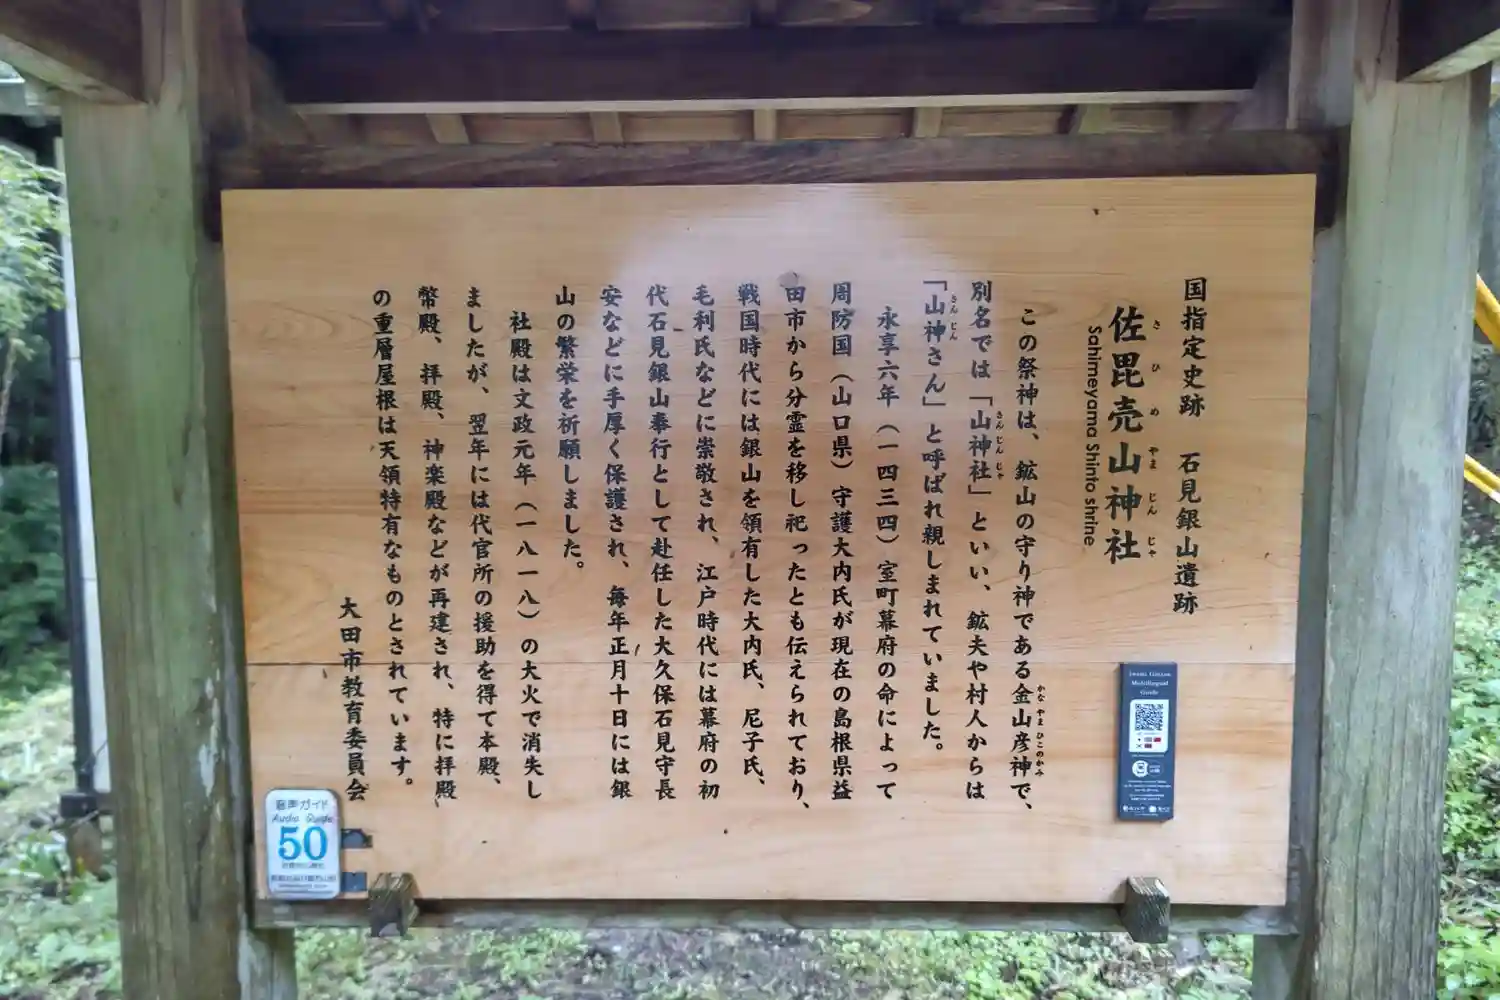 国指定史跡 石見銀山遺跡
佐毘売山神社
さ ひ め やま じん じゃ
Sahimeyama Shinto shrine
この祭神は、鉱山の守り神である金山彦神で、
かな やま ひこ の かみ
別名では「山神社」といい、鉱夫や村人からは
さん じん じゃ
「山神さん」と呼ばれ親しまれていました。
さん じん
永享六年（一四三四）室町幕府の命によって
周防国（山口県）守護大内氏が現在の島根県益
田市から分霊を移し祀ったとも伝えられており、
戦国時代には銀山を領有した大内氏、尼子氏、
毛利氏などに崇敬され、江戸時代には幕府の初
代石見銀山奉行として赴任した大久保石見守長
安などに手厚く保護され、毎年正月十日には銀
山の繁栄を祈願しました。
社殿は文政元年（一八一八）の大火で消失し
ましたが、翌年には代官所の援助を得て本殿、
幣殿、拝殿、神楽殿などが再建され、特に拝殿
の重層屋根は天領特有なものとされています。
大田市教育委員会
Iwami Ginzan
Multilingual
Guide
音声ガイド
Audio Guide
50